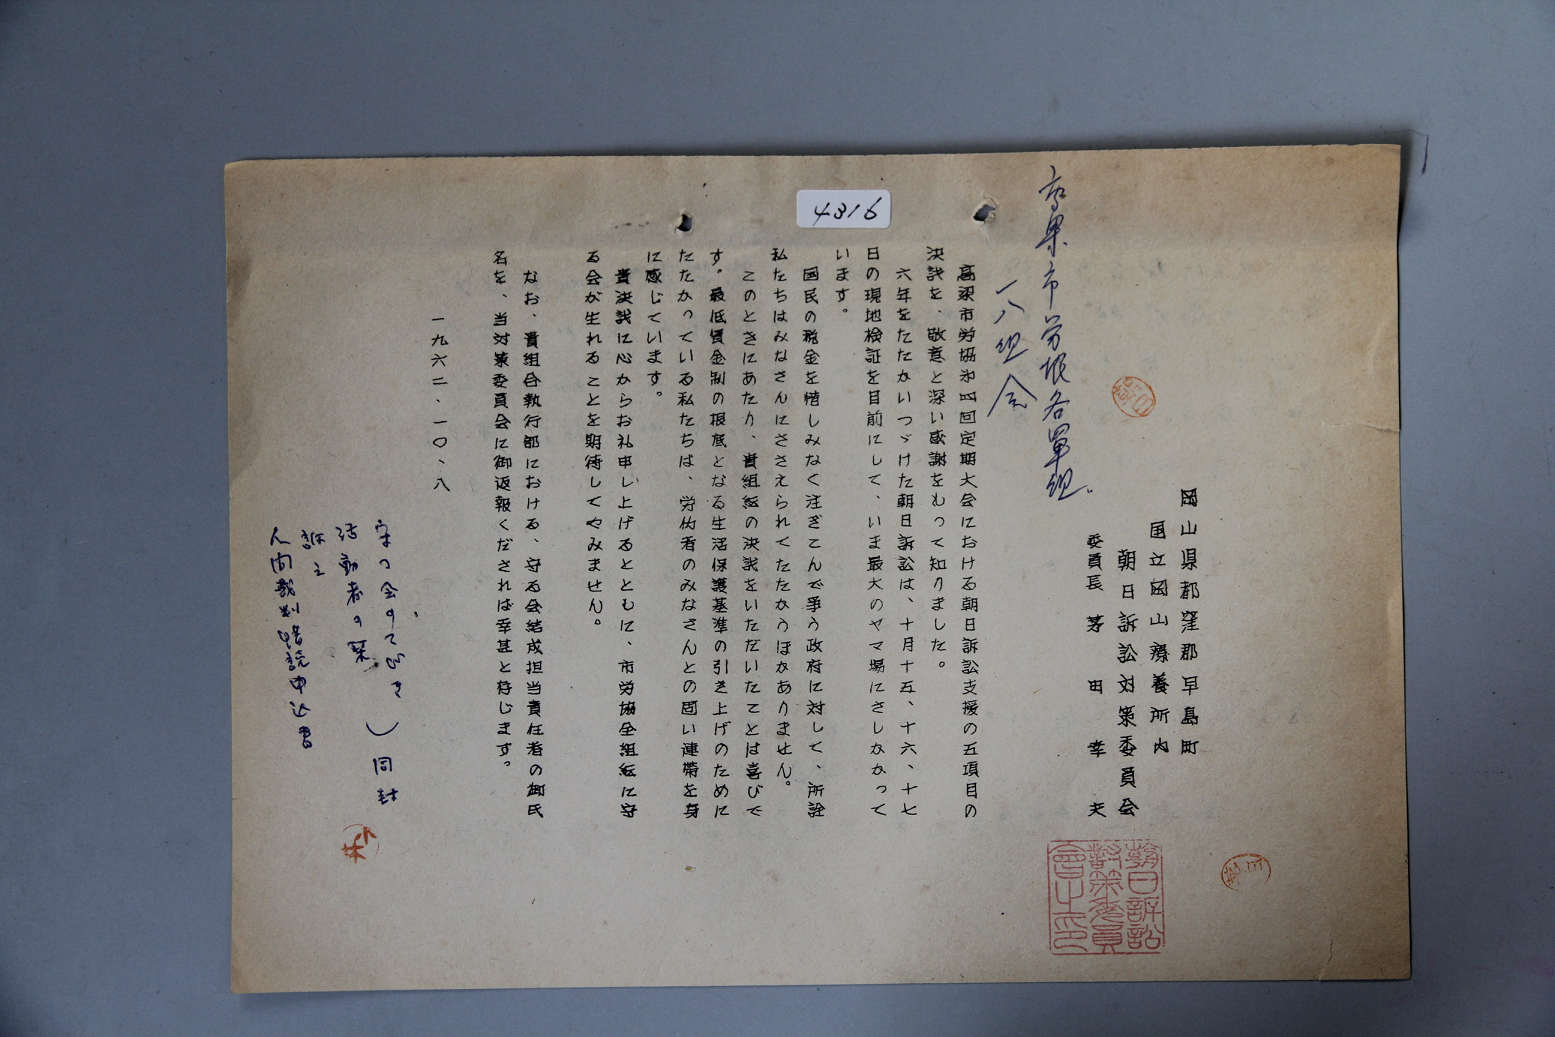 4316
岡山県都窪郡早島町
国立岡山療養所内
朝日訴訟対策委員会
委員長 茅田幸夫
朝日訴訟
対策委員
會之印
高梁市労協各單組
一八組合
高梁市労協第四回定期大会における朝日訴訟支援の五項目の
決議を、敬意と深い感謝をもって知りました。
六年をたたかいつゞけた朝日訴訟は、十月十五、十六、十七
日の現地検証を目前にして、いま最大のヤマ場にさしかかって
います。
国民の税金を惜しみなく注ぎこんで争う政府に対して、所詮
私たちはみなさんにささえられてたたかうほかありません。
このときにあたり、貴組織の決議をいただいたことは喜びで
す。最低賃金制の根底となる生活保護基準の引き上げのために
たたかっている私たちは、労仂者のみなさんとの固い連帯を身
に感じています。
貴決議に心からお礼申し上げるとともに、市労協全組織に守
る会が生れることを期待してやみません。
なお、貴組合執行部における、守る会結成担当責任者の御氏
名を、当対策委員会に御返報くだされば幸甚と存じます。
一九六二、一〇、八
守る会のてびき)同封
活動者の栞
訴え
人間裁判購読申込書